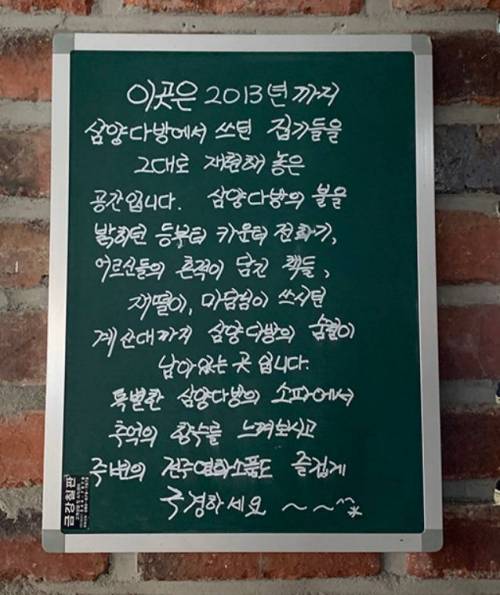 이곳은 2013년 까지
삼양다방에서 쓰던 집기들을
그대로 재현해 놓은
공간입니다. 삼양다방의 불을
밝히던 등부터 카운터 전화기,
어르신들의 흔적이 담긴 책들,
재떨이, 마담님이 쓰시던
계산대까지 삼양다방의 숨결이
남아있는 곳 입니다.
특별한 삼양다방의 소파에서
추억의 향수를 느껴보시고
주변의 전주영화소품도 즐겁게
구경하세요 ~~^^*
금강칠판